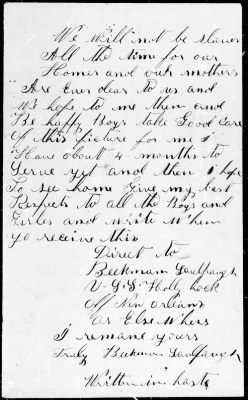 We will not be slaves
All the time for our
Homes and our mothers
Are Ever dear to us and
We hope to me them and
Be happy Boys take Good Care
Of this picture for me I
Have about 4 months to
Serve yet and then I hope
To see home Give my best
Respects to all the Boys and
Girles and write when
yo receive this
Direct to
Beekmam
U-S-S- Holly hock
Off New orleans
or Else Whers
I remane yours
Truly Beekman
Written in haste